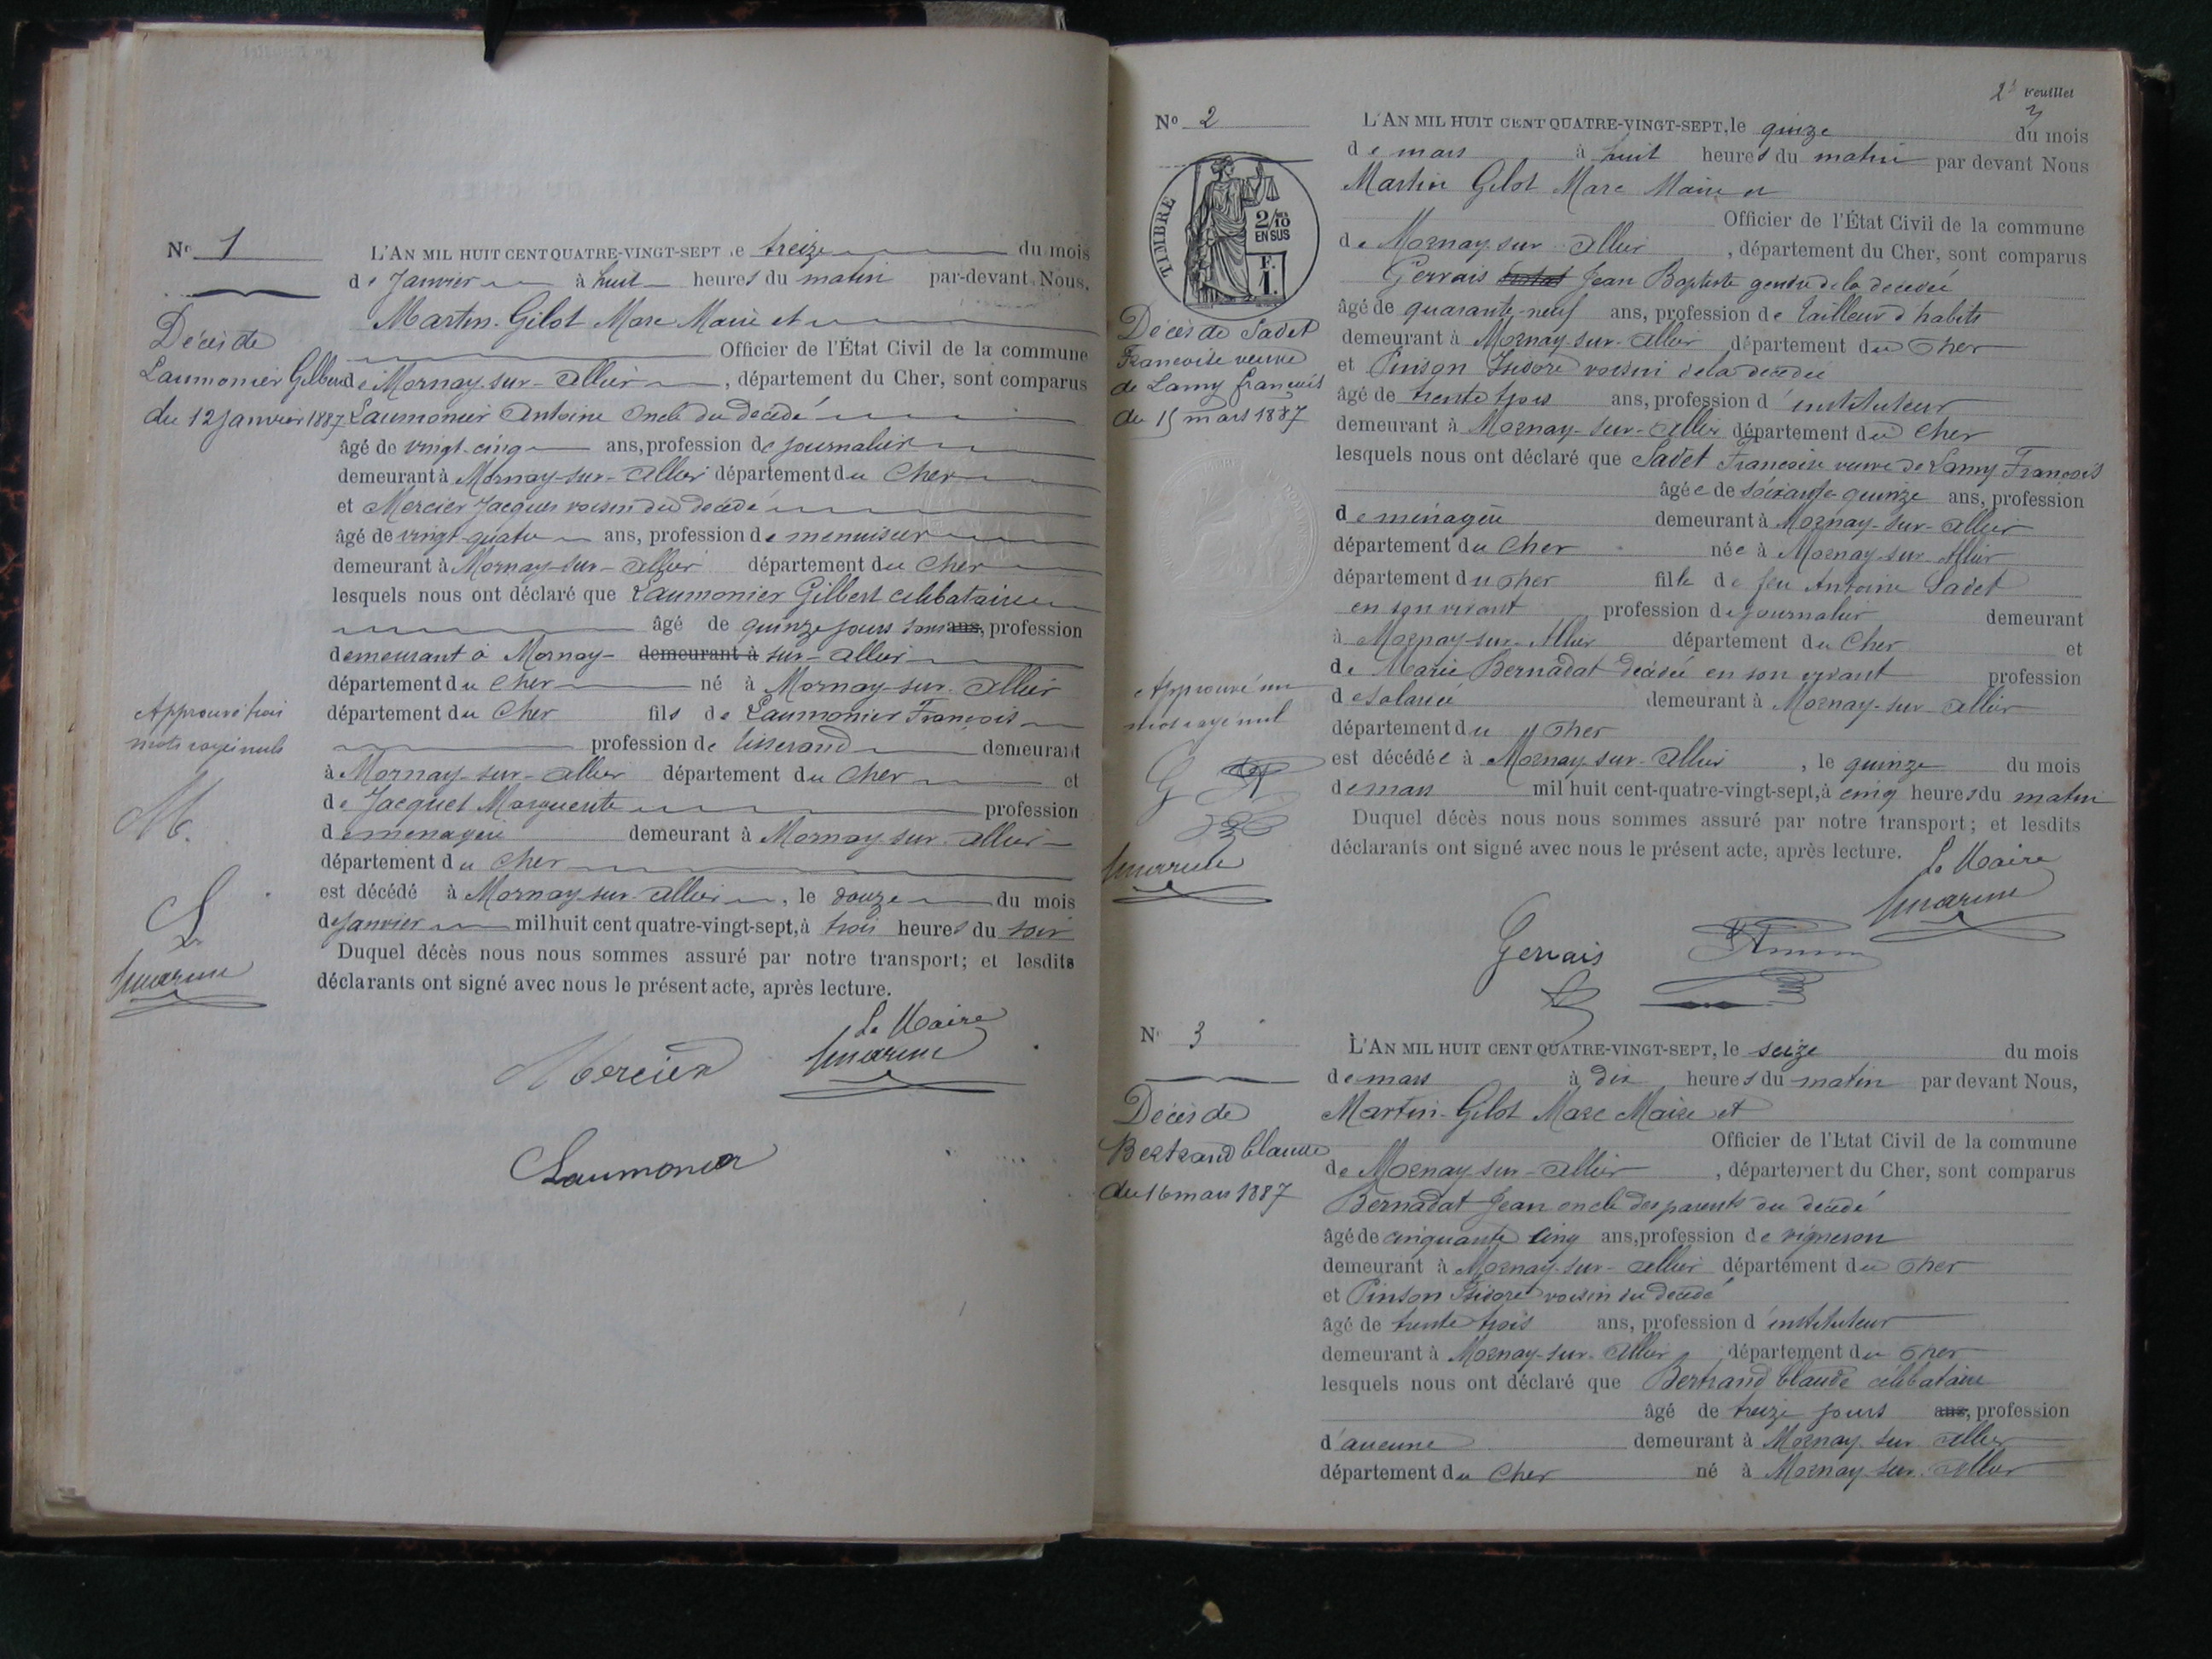 Nº 1
Décès de
Laumonier Gilbert
du 12 janvier 1887
L'AN MIL HUIT CENT QUATRE-VINGT-SEPT le treize du mois
de Janvier à huit heures du matin par-devant Nous,
Martin-Gilot Marc Maire et
Officier de l'État Civil de la commune
de Mornay-sur-Allier, département du Cher, sont comparus
Laumonier Antoine oncle du décédé
âgé de vingt-cinq ans, profession de journalier
demeurant à Mornay-sur-Allier département du Cher
et Mercier Jacques voisin du décédé
âgé de vingt-quatre ans, profession de menuisier
demeurant à Mornay-sur-Allier département du Cher
lesquels nous ont déclaré que Laumonier Gilbert célibataire
âgé de quinze jours sans ans, profession
demeurant à Mornay- demeurant à sur-Allier
département du Cher né à Mornay-sur-Allier
département du Cher fils de Laumonier François
profession de tisserand demeurant
à Mornay-sur-Allier département du Cher et
de Jacquet Marguerite profession
de ménagère demeurant à Mornay-sur-Allier
département du Cher
est décédé à Mornay-sur-Allier, le douze du mois
de janvier mil huit cent quatre-vingt-sept, à trois heures du soir
Duquel décès nous nous sommes assuré par notre transport; et lesdits
déclarants ont signé avec nous le présent acte, après lecture.
Approuvé trois
mots rayés nuls
M.
L
Le Maire
Mercier
Laumonier
2e Feuillet
3
Nº 2
TIMBRE
2/10 EN SUS
F. 1.
Décès de Sadet
Françoise veuve
de Lamy François
du 15 mars 1887
L'AN MIL HUIT CENT QUATRE-VINGT-SEPT, le quinze du mois
de mars à huit heures du matin par devant Nous
Martin Gilot Marc Maire et
Officier de l'État Civil de la commune
de Mornay-sur-Allier, département du Cher, sont comparus
Gervais Jean Baptiste gendre de la décédée
âgé de quarante-neuf ans, profession de tailleur d'habits
demeurant à Mornay-sur-Allier département du Cher
et Pinson Isidore voisin de la décédée
âgé de trente trois ans, profession d'instituteur
demeurant à Mornay-sur-Allier département du Cher
lesquels nous ont déclaré que Sadet Françoise veuve de Lamy François
âgée de soixante-quinze ans, profession
de ménagère demeurant à Mornay-sur-Allier
département du Cher née à Mornay-sur-Allier
département du Cher fille de feu Antoine Sadet
en son vivant profession de journalier demeurant
à Mornay-sur-Allier département du Cher et
de Marie Bernadat décédée en son vivant profession
de salariée demeurant à Mornay-sur-Allier
département du Cher
est décédée à Mornay-sur-Allier, le quinze du mois
de mars mil huit cent-quatre-vingt-sept, à cinq heures du matin
Duquel décès nous nous sommes assuré par notre transport; et lesdits
déclarants ont signé avec nous le présent acte, après lecture.
Approuvé un
mot rayé nul
G
Le Maire
Gervais
Nº 3
Décès de
Bertrand Claude
du 16 mars 1887
L'AN MIL HUIT CENT QUATRE-VINGT-SEPT, le seize du mois
de mars à dix heures du matin par devant Nous,
Martin-Gilot Marc Maire et
Officier de l'Etat Civil de la commune
de Mornay-sur-Allier, département du Cher, sont comparus
Bernadat Jean oncle des parents du décédé
âgé de cinquante cinq ans, profession de vigneron
demeurant à Mornay-sur-Allier département du Cher
et Pinson Isidore voisin du décédé
âgé de trente trois ans, profession d'instituteur
demeurant à Mornay-sur-Allier département du Cher
lesquels nous ont déclaré que Bertrand Claude célibataire
âgé de treize jours ans, profession
d'aucune demeurant à Mornay-sur-Allier
département du Cher né à Mornay-sur-Allier